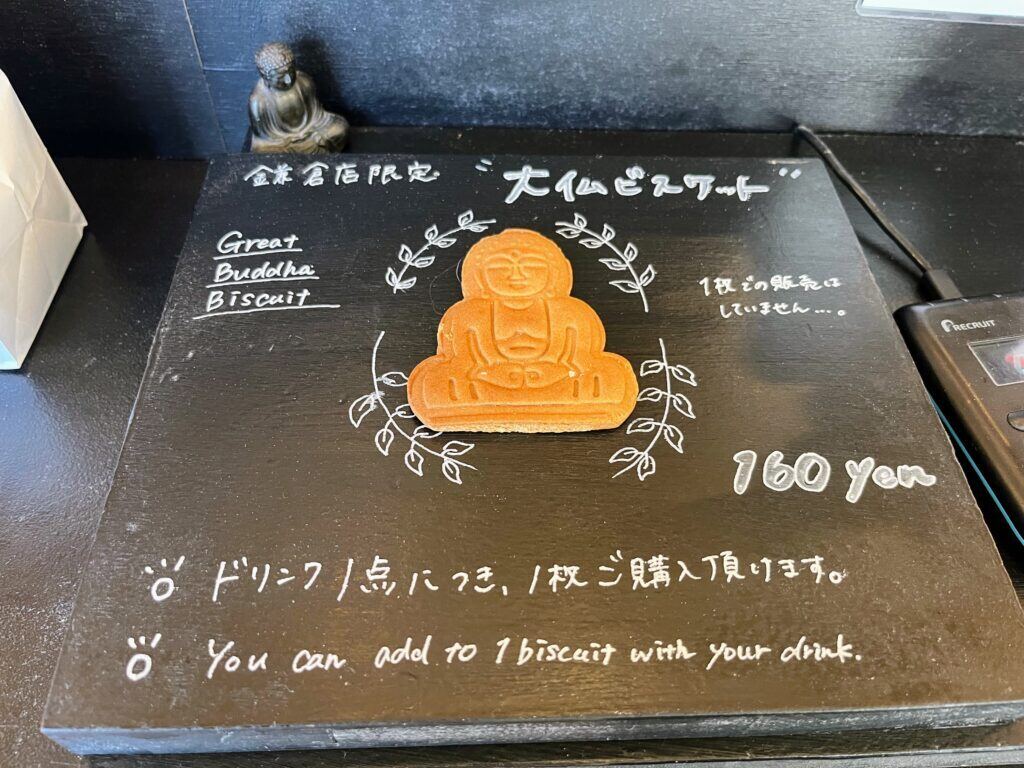 鎌倉店限定 "大仏ビスケット"
Great
Buddha
Biscuit
1枚での販売は
していません…。
RECRUIT
160 yen
ドリンク1点につき、1枚ご購入頂けます。
You can add to 1 biscuit with your drink.